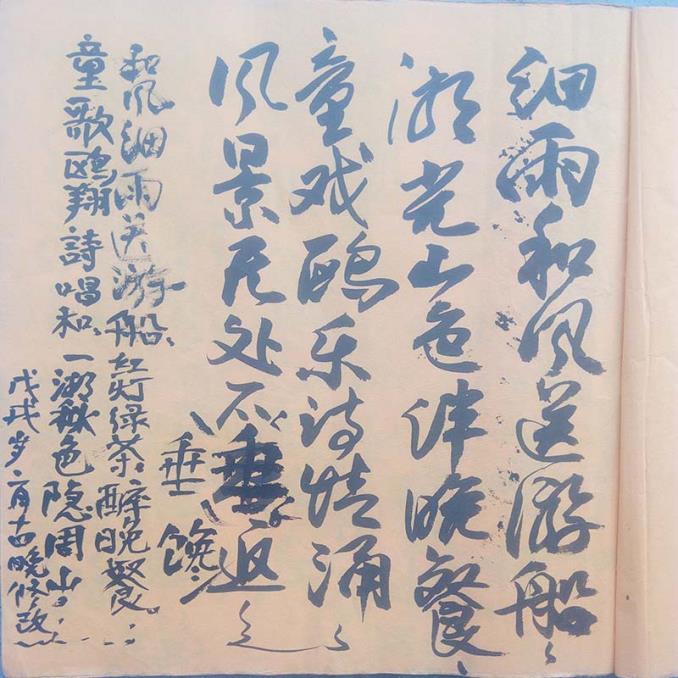 细雨和风送游船、
湖光山色伴晚餐、
童戏鸥乐诗情涌、
风景处不垂
垂
馋
和风细雨送游船、红灯绿茶醉晚餐。
童歌鸥翔詩唱和、一湖秋色隐周山。
戊戌岁月十四晚修改